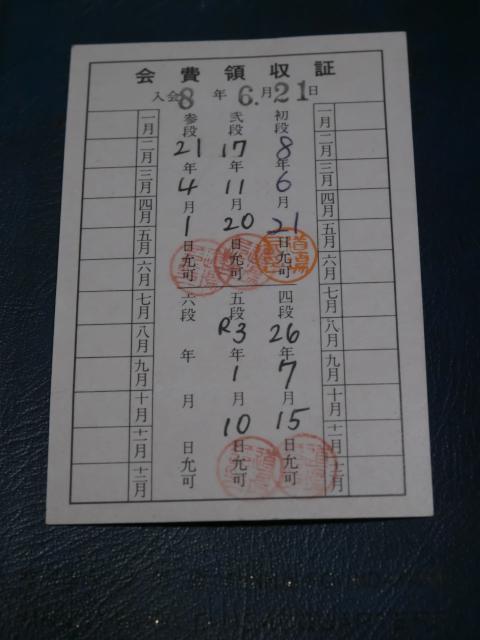 会費領収証
入会8年6.月21日
一月
二月
三月
四月
五月
六月
七月
八月
九月
十月
十一月
十二月
初段
8年6月21日允可
弐段
17年11月20日允可
参段
21年4月1日允可
四段
26年7月15日允可
五段
R3年1月10日允可
六段
年月日允可
一月
二月
三月
四月
五月
六月
七月
八月
九月
十月
十一月
十二月